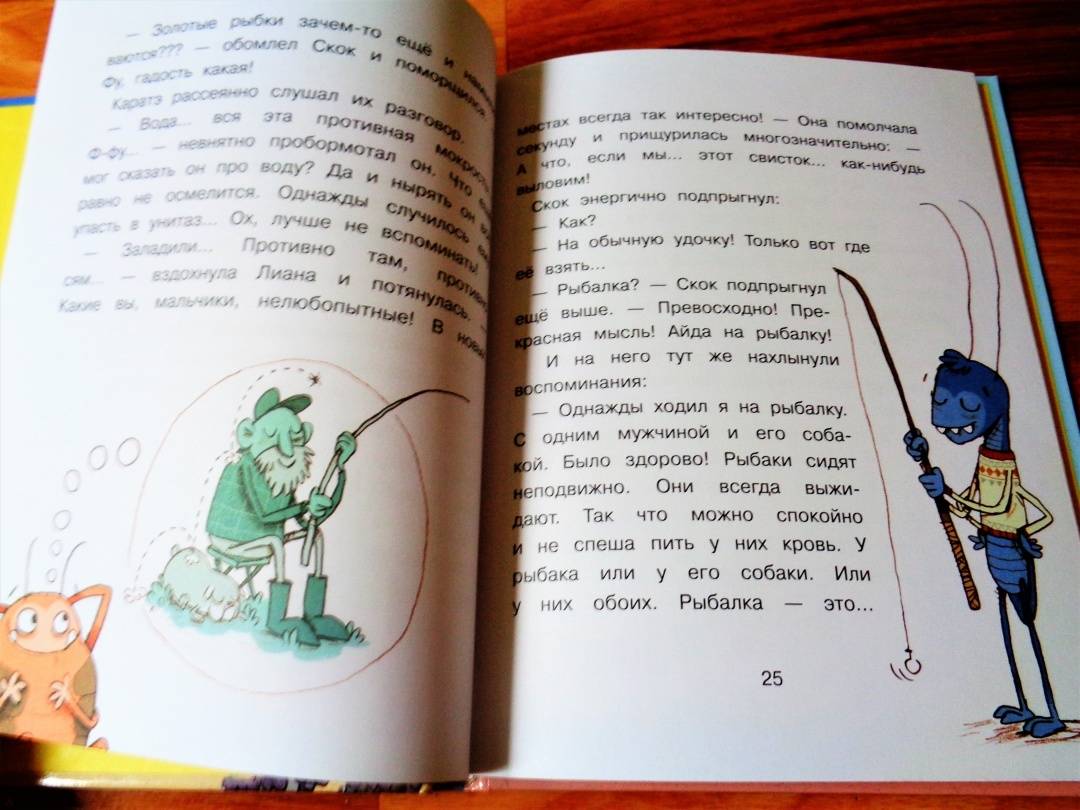 — Золотые рыбки зачем-то ещё и
ваются??? — обомлел Скок и поморщился.
Фу, гадость какая!
Каратэ рассеянно слушал их разговор.
— Вода... вся эта противная мокрость
Ф-фу... — невнятно пробормотал он. Что
мог сказать он про воду? Да и нырять он
равно не осмелится. Однажды случилось
упасть в унитаз... Ох, лучше не вспоминать!
— Заладили... Противно там, противно
сям... — вздохнула Лиана и потянулась. —
Какие вы, мальчики, нелюбопытные! В
местах всегда так интересно! — Она помолчала
секунду и прищурилась многозначительно: —
А что, если мы... этот свисток... как-нибудь
выловим!
Скок энергично подпрыгнул:
— Как?
— На обычную удочку! Только вот где
её взять...
— Рыбалка? — Скок подпрыгнул
ещё выше. — Превосходно! Пре-
красная мысль! Айда на рыбалку!
И на него тут же нахлынули
воспоминания:
— Однажды ходил я на рыбалку.
С одним мужчиной и его соба-
кой. Было здорово! Рыбаки сидят
неподвижно. Они всегда выжи-
дают. Так что можно спокойно
и не спеша пить у них кровь. У
рыбака или у его собаки. Или
у них обоих. Рыбалка — это...
25